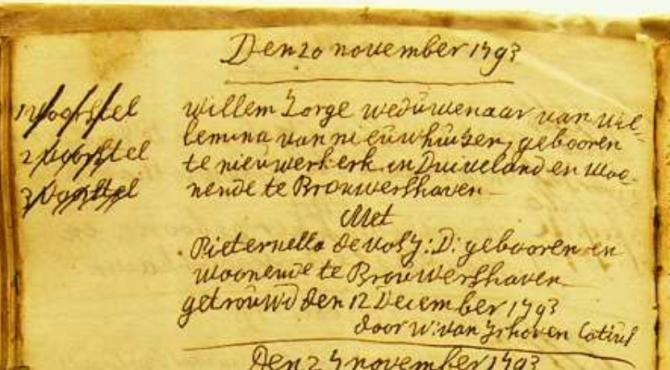 Den 20 november 1793
1 Voorstel
2 Voorstel
3 Voorstel
willem Lorge weduwenaar van wil-
lemina van nieuwhuijzen, gebooren
te nieuwerkerk in Duiveland en woo-
nende te Brouwershaven
Met
Pieternella de vos J: D: gebooren en
woonende te Brouwershaven
getrouwd den 12 December 1793
door w: van
Den 24 november 1793